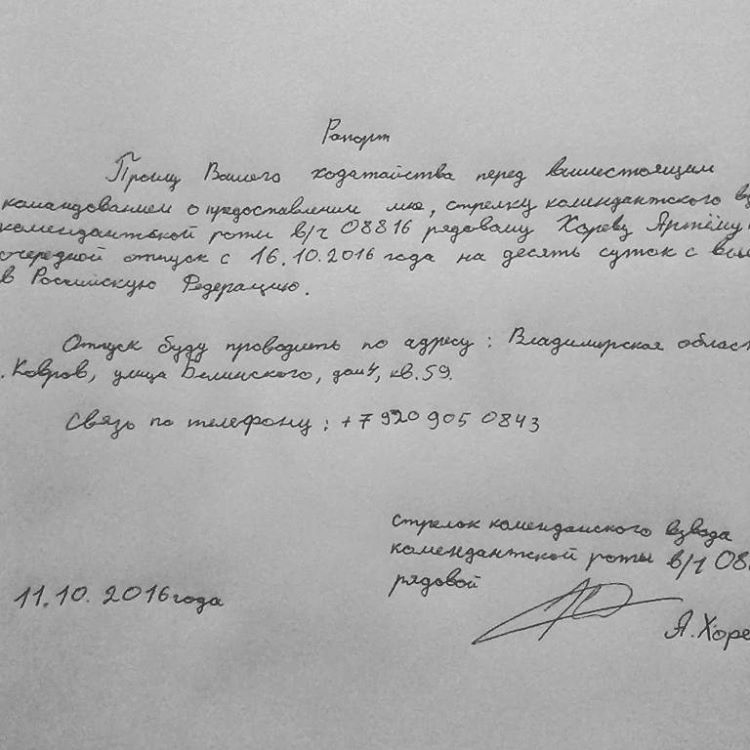 Рапорт
Прошу Вашего ходатайства перед вышестоящим
командованием о предоставлении мне, стрелку комендантского вз
комендантской роты в/ч 08816 рядовому Хореву Артёму
очередной отпуск с 16.10.2016 года на десять суток с вые
в Российскую Федерацию.
Отпуск буду проводить по адресу: Владимирская област
. Ковров, улица Белинского, дом 4, кв.59.
Связь по телефону: +7 920 905 0843
стрелок коменданского взвода
комендантской роты в/ч 088
рядовой
11.10.2016 года
А.Хоре